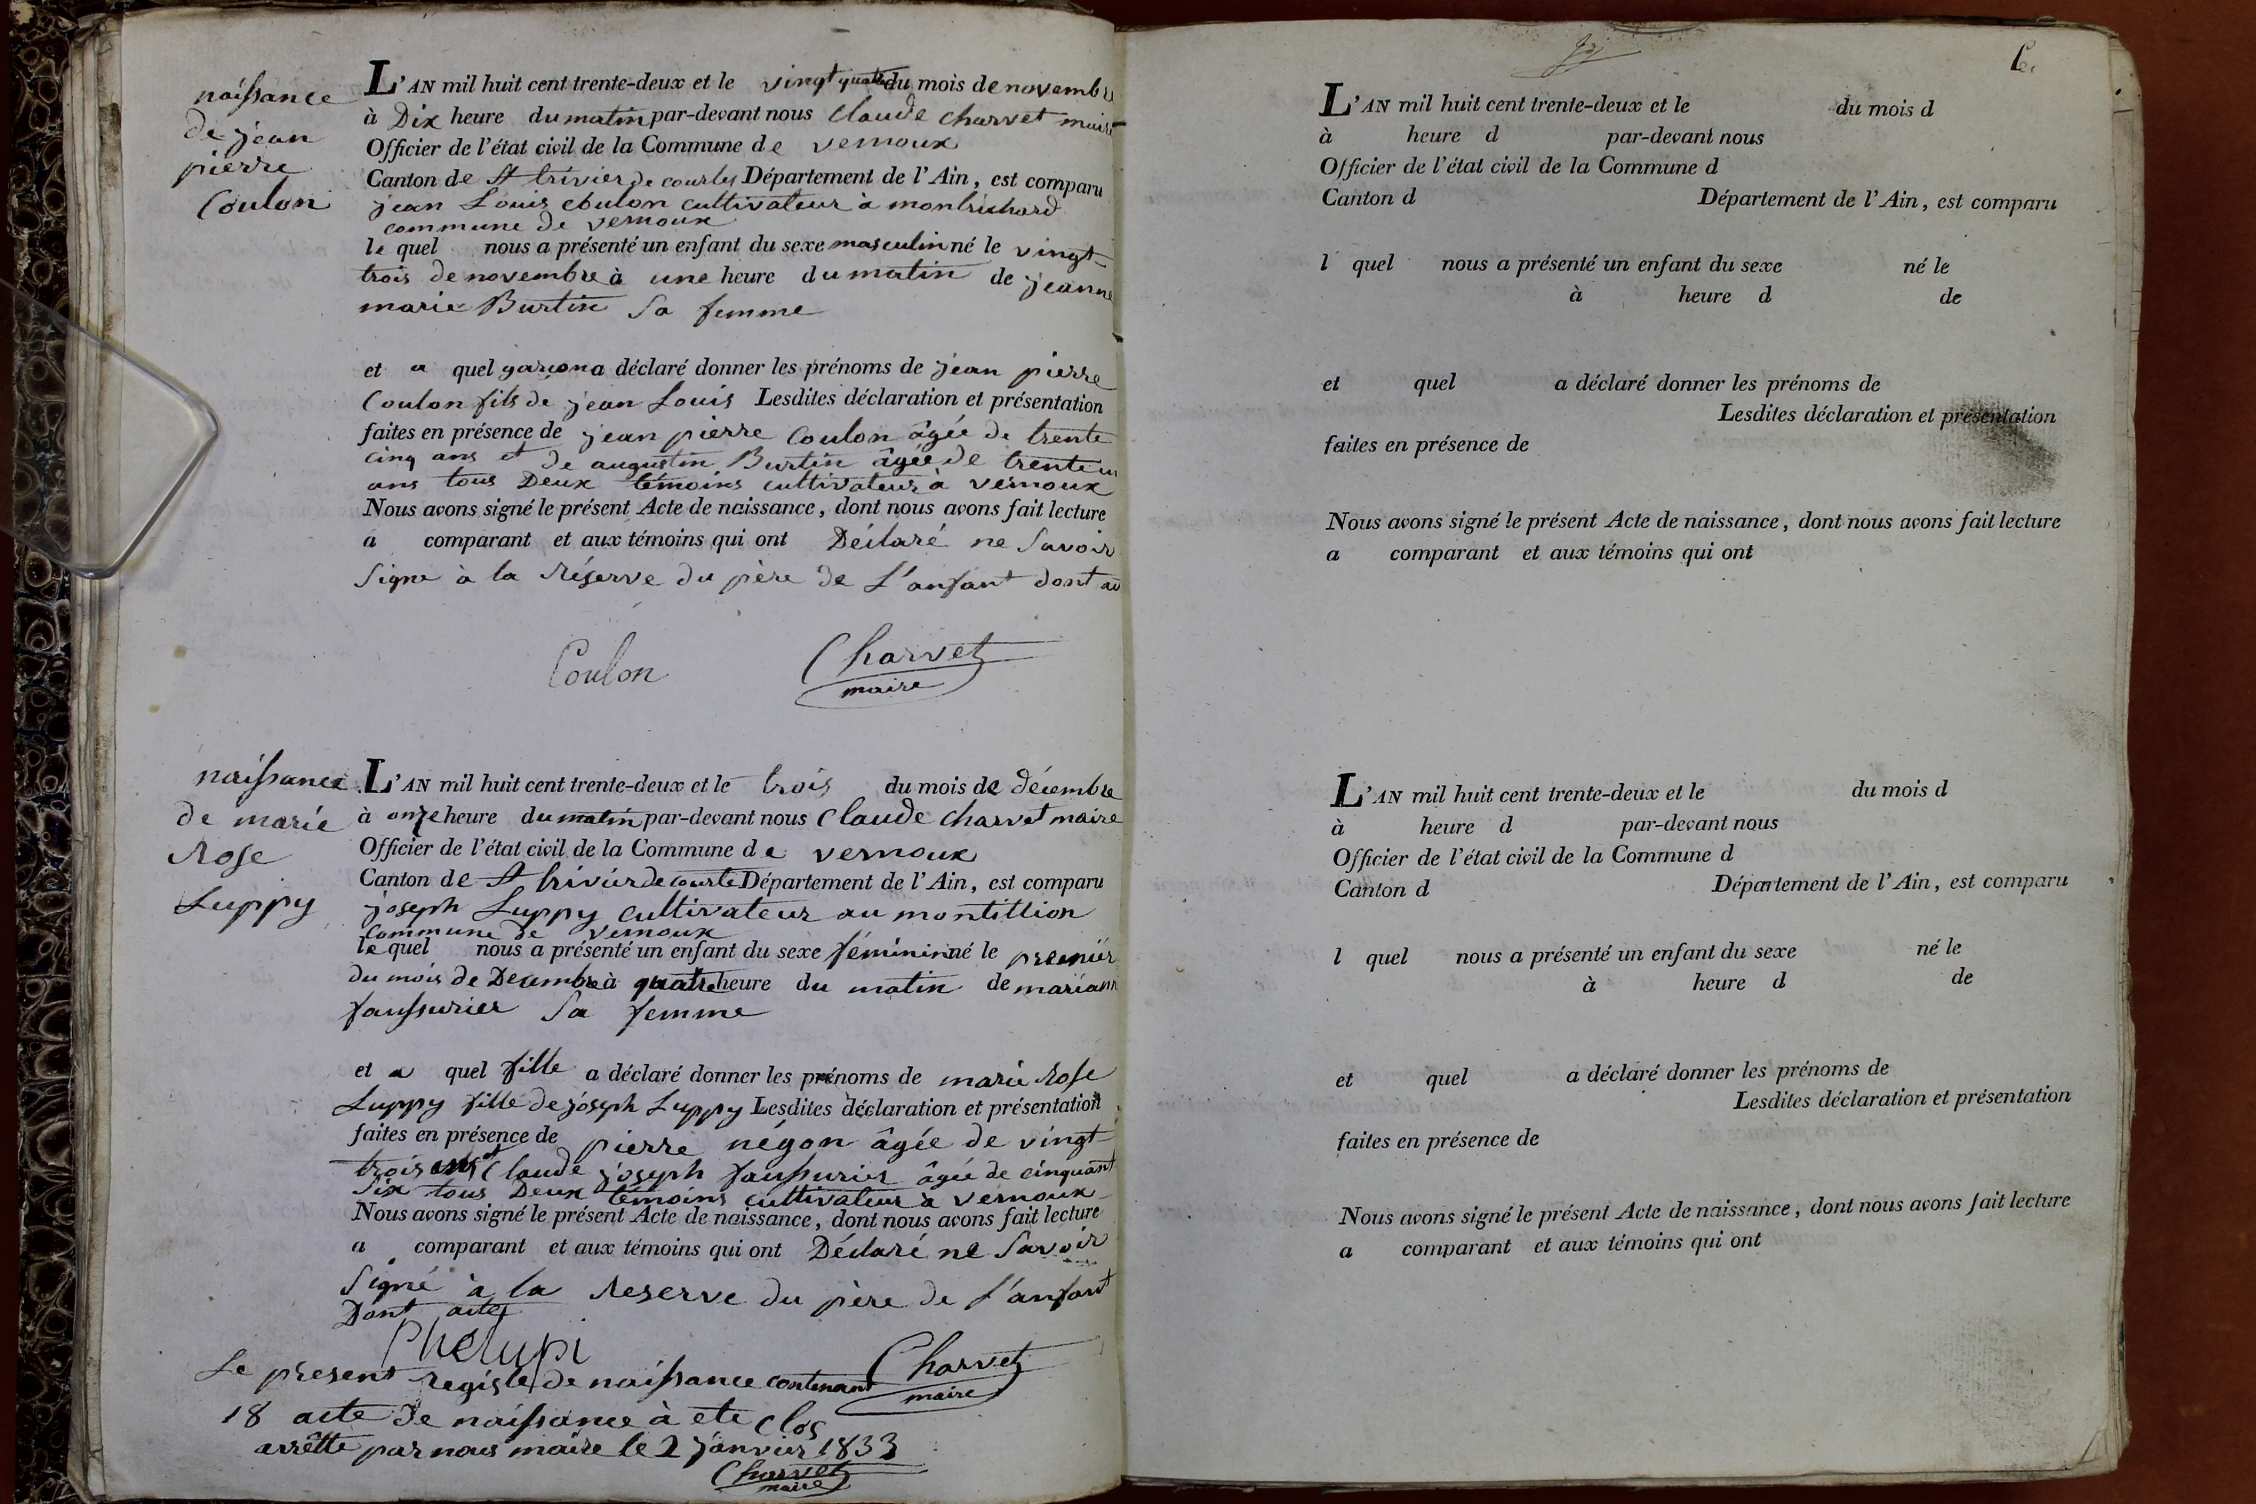 naissance
de jean
pierre
Coulon
L'AN mil huit cent trente-deux et le vingt quatre du mois de novembre
à Dix heure du matin par-devant nous Claude Charvet maire
Officier de l'état civil de la Commune de vernoux
Canton de St trivier de courtes Département de l'Ain, est comparu
jean Louis coulon cultivateur à montrichard
commune de vernoux
le quel nous a présenté un enfant du sexe masculin né le vingt
trois de novembre à une heure du matin de jeanne
marie Burtin Sa femme
et a quel garçon a déclaré donner les prénoms de jean pierre
Coulon fils de jean Louis Lesdites déclaration et présentation
faites en présence de jean pierre Coulon âgée de trente
cinq ans et de augustin Burtin âgée de trente un
ans tous Deux témoins cultivateur à vernoux
Nous avons signé le présent Acte de naissance, dont nous avons fait lecture
a comparant et aux témoins qui ont Déclaré ne Savoir
Signe à la réserve du père de L'anfant dont
Coulon
Charvet
maire
naissance
de marie
Rose
Luppy
L'AN mil huit cent trente-deux et le trois du mois de décembre
à onze heure du matin par-devant nous Claude charvet maire
Officier de l'état civil de la Commune de vernoux
Canton de St trivier de courte Département de l'Ain, est comparu
joseph Luppy cultivateur au montillion
commune de vernoux
le quel nous a présenté un enfant du sexe féminin né le premier
du mois de Decembre à quatre heure du matin de mariann
faussurier Sa femme
et a quel fille a déclaré donner les prénoms de marie Rose
Luppy fille de joseph Luppy Lesdites déclaration et présentation
faites en présence de pierre négon âgée de vingt
trois ans et Claude joseph faussurier âgée de cinquant
Six tous Deux témoins cultivateur à vernoux
Nous avons signé le présent Acte de naissance, dont nous avons fait lecture
a comparant et aux témoins qui ont Déclaré ne Savoir
Signé à la reserve du père de L'anfant
Dont acte
Charvet
maire
Le present registe de naissance contenant
18 acte de naissance à ete clos
arrêtte par nous maire le 2 janvier 1833
Charvet
maire
L'AN mil huit cent trente-deux et le du mois d
à heure d par-devant nous
Officier de l'état civil de la Commune d
Canton d Département de l'Ain, est comparu
l quel nous a présenté un enfant du sexe né le
à heure d de
et quel a déclaré donner les prénoms de
Lesdites déclaration et présentation
faites en présence de
Nous avons signé le présent Acte de naissance, dont nous avons fait lecture
a comparant et aux témoins qui ont
L'AN mil huit cent trente-deux et le du mois d
à heure d par-devant nous
Officier de l'état civil de la Commune d
Canton d Département de l'Ain, est comparu
l quel nous a présenté un enfant du sexe né le
à heure d de
et quel a déclaré donner les prénoms de
Lesdites déclaration et présentation
faites en présence de
Nous avons signé le présent Acte de naissance, dont nous avons fait lecture
a comparant et aux témoins qui ont